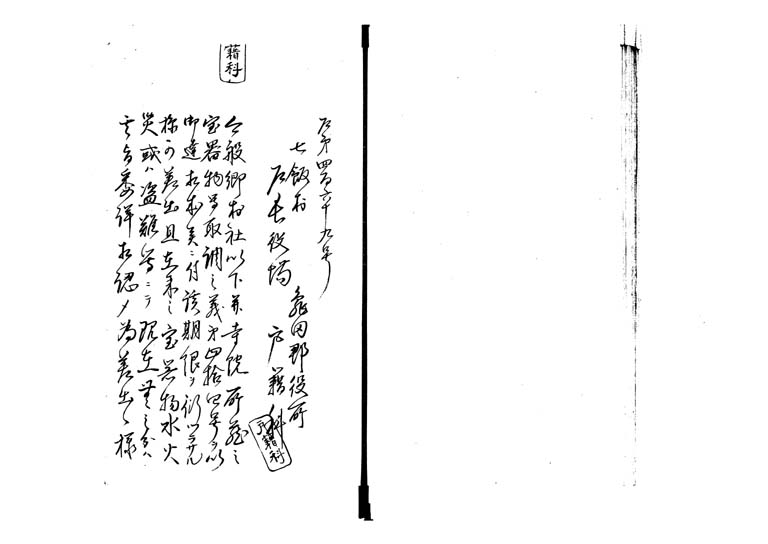 籍科
戸第四百六十九号
七飯村
戸長役場
亀田郡役所
戸籍科
戸籍科
今般郷村社以下並寺院所蔵之
宝器物等取調之義第四拾四号ヲ以
御達相成候ニ付該期限ヲ
様可差出且在来之宝器物水火
災或ハ盗難等ニテ現在無之分ハ
其旨委詳相認メ為差出候様